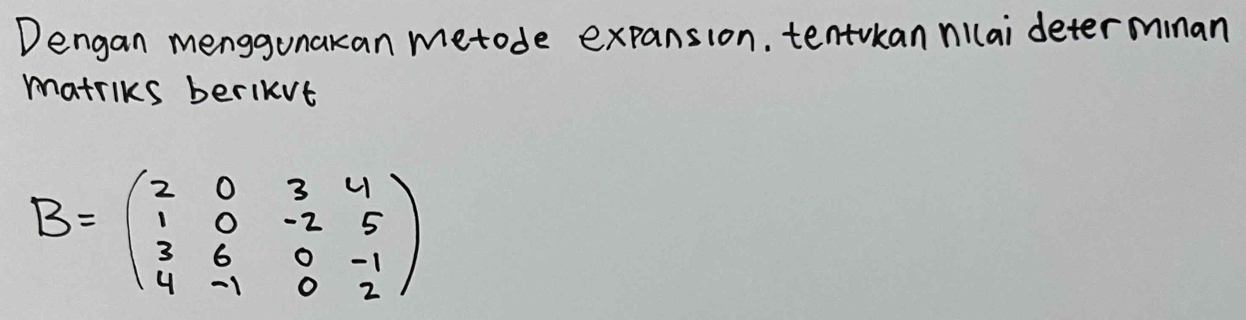 Dengan menggunakan metode expansion. tentukan nilai determinan
matriks berikut
B = ( 2 0 3 4
1 0 -2 5
3 6 0 -1
4 -1 0 2 )